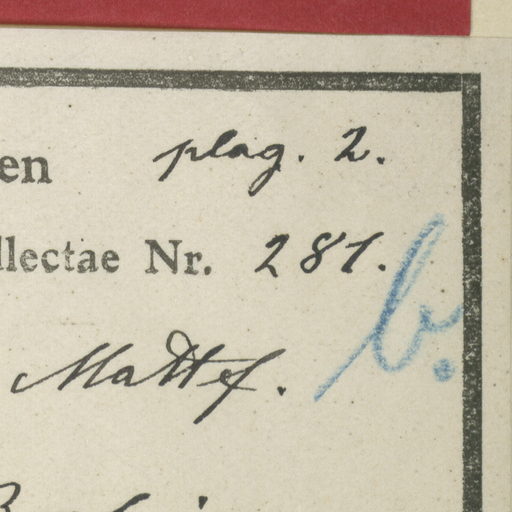 en plag. 2.
llectae Nr. 281.
b.
Mattf.